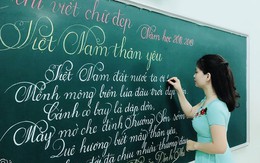 thi viết chữ đẹp
Năm học 2018-2019
Việt Nam thân yêu
Việt Nam đất nước ta
Mênh mông biển lúa đâu trời đẹp hơn
Cánh cò bay lả dập dờn,
Mây mờ che đỉnh Trường Sơn sớm
Quê hương biết mấy thân yêu,
đời đã chịu nhiều thương đau